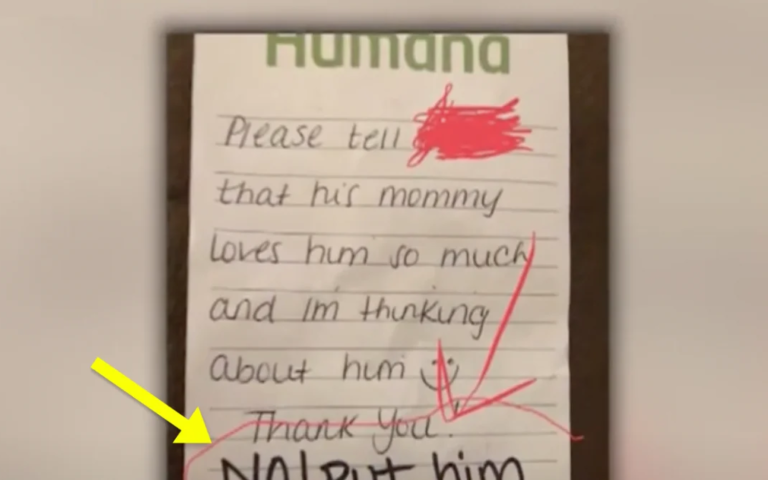 Humana
Please tell
that his mommy
loves him so much
and im thinking
about him
Thank You.
NO! Put him